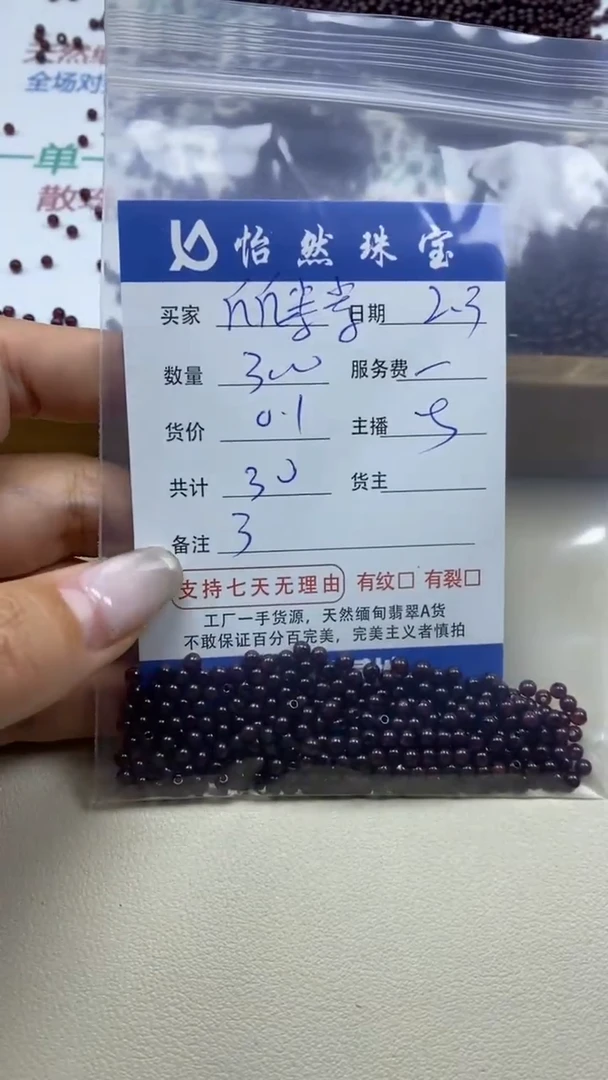 全场对
一单一
怡然珠宝
买家 日期 2.3
数量 300 服务费 一
货价 0.1 主播
共计 30 货主
备注 3
支持七天无理由 有纹□ 有裂□
工厂一手货源，天然缅甸翡翠A货
不敢保证百分百完美，完美主义者慎拍